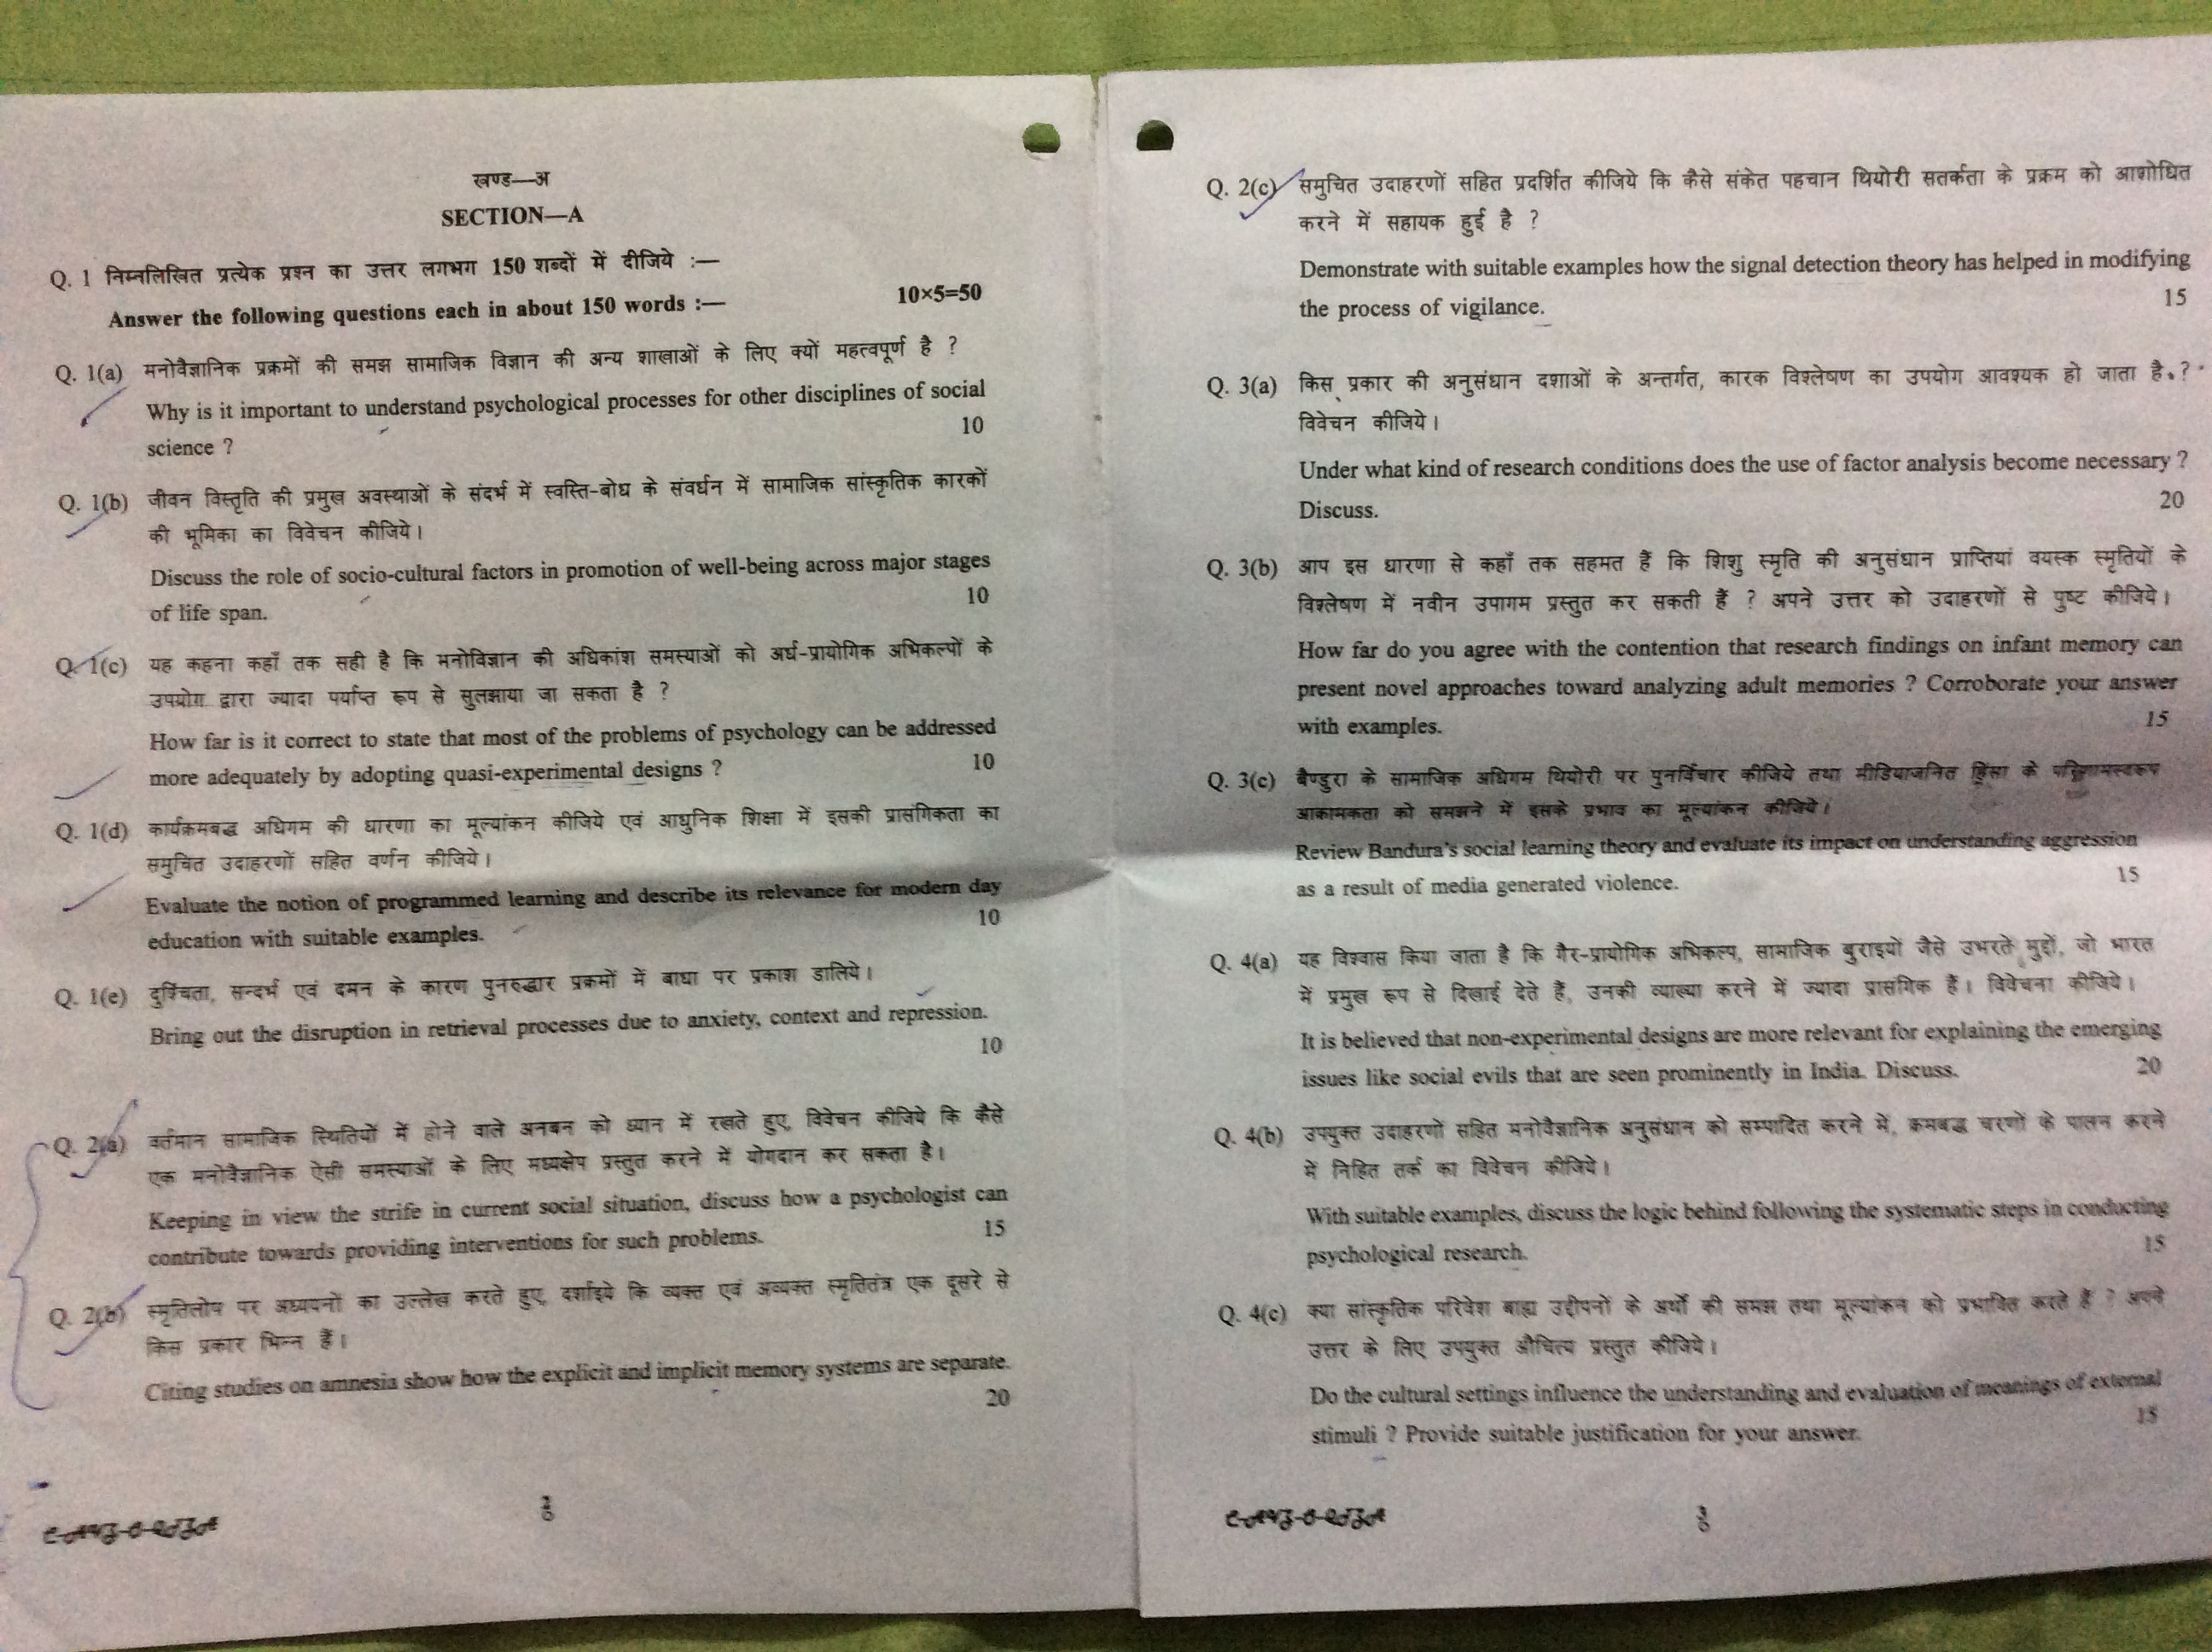 खण्ड—अ
SECTION—A
Q. 1 निम्नलिखित प्रत्येक प्रश्न का उत्तर लगभग 150 शब्दों में दीजिये :—
Answer the following questions each in about 150 words :— 10×5=50
Q. 1(a) मनोवैज्ञानिक प्रक्रमों की समझ सामाजिक विज्ञान की अन्य शाखाओं के लिए क्यों महत्वपूर्ण है ?
Why is it important to understand psychological processes for other disciplines of social
science ? 10
Q. 1(b) जीवन विस्तृति की प्रमुख अवस्थाओं के संदर्भ में स्वस्ति-बोध के संवर्धन में सामाजिक सांस्कृतिक कारकों
की भूमिका का विवेचन कीजिये।
Discuss the role of socio-cultural factors in promotion of well-being across major stages
of life span. 10
Q. 1(c) यह कहना कहाँ तक सही है कि मनोविज्ञान की अधिकांश समस्याओं को अर्ध-प्रायोगिक अभिकल्पों के
उपयोग द्वारा ज्यादा पर्याप्त रूप से सुलझाया जा सकता है ?
How far is it correct to state that most of the problems of psychology can be addressed
more adequately by adopting quasi-experimental designs ? 10
Q. 1(d) कार्यक्रमबद्ध अधिगम की धारणा का मूल्यांकन कीजिये एवं आधुनिक शिक्षा में इसकी प्रासंगिकता का
समुचित उदाहरणों सहित वर्णन कीजिये।
Evaluate the notion of programmed learning and describe its relevance for modern day
education with suitable examples. 10
Q. 1(e) दुश्चिंता, सन्दर्भ एवं दमन के कारण पुनरुद्धार प्रक्रमों में बाधा पर प्रकाश डालिये।
Bring out the disruption in retrieval processes due to anxiety, context and repression.
10
Q. 2(a) वर्तमान सामाजिक स्थितियों में होने वाले अनबन को ध्यान में रखते हुए, विवेचन कीजिये कि कैसे
एक मनोवैज्ञानिक ऐसी समस्याओं के लिए मध्यक्षेप प्रस्तुत करने में योगदान कर सकता है।
Keeping in view the strife in current social situation, discuss how a psychologist can
contribute towards providing interventions for such problems. 15
Q. 2(b) स्मृतिलोप पर अध्ययनों का उल्लेख करते हुए, दर्शाइये कि व्यक्त एवं अव्यक्त स्मृतितंत्र एक दूसरे से
किस प्रकार भिन्न हैं।
Citing studies on amnesia show how the explicit and implicit memory systems are separate.
20
2
Q. 2(c) समुचित उदाहरणों सहित प्रदर्शित कीजिये कि कैसे संकेत पहचान थियोरी सतर्कता के प्रक्रम को आशोधित
करने में सहायक हुई है ?
Demonstrate with suitable examples how the signal detection theory has helped in modifying
the process of vigilance. 15
Q. 3(a) किस प्रकार की अनुसंधान दशाओं के अन्तर्गत, कारक विश्लेषण का उपयोग आवश्यक हो जाता है ?
विवेचन कीजिये।
Under what kind of research conditions does the use of factor analysis become necessary ?
Discuss. 20
Q. 3(b) आप इस धारणा से कहाँ तक सहमत हैं कि शिशु स्मृति की अनुसंधान प्राप्तियां वयस्क स्मृतियों के
विश्लेषण में नवीन उपागम प्रस्तुत कर सकती हैं ? अपने उत्तर को उदाहरणों से पुष्ट कीजिये।
How far do you agree with the contention that research findings on infant memory can
present novel approaches toward analyzing adult memories ? Corroborate your answer
with examples. 15
Q. 3(c) बैण्डुरा के सामाजिक अधिगम थियोरी पर पुनर्विचार कीजिये तथा मीडियाजनित हिंसा के परिणामस्वरूप
आक्रामकता को समझने में इसके प्रभाव का मूल्यांकन कीजिये।
Review Bandura's social learning theory and evaluate its impact on understanding aggression
as a result of media generated violence. 15
Q. 4(a) यह विश्वास किया जाता है कि गैर-प्रायोगिक अभिकल्प, सामाजिक बुराइयों जैसे उभरते मुद्दों, जो भारत
में प्रमुख रूप से दिखाई देते हैं, उनकी व्याख्या करने में ज्यादा प्रासंगिक हैं। विवेचना कीजिये।
It is believed that non-experimental designs are more relevant for explaining the emerging
issues like social evils that are seen prominently in India. Discuss. 20
Q. 4(b) उपयुक्त उदाहरणों सहित मनोवैज्ञानिक अनुसंधान को सम्पादित करने में, क्रमबद्ध चरणों के पालन करने
में निहित तर्क का विवेचन कीजिये।
With suitable examples, discuss the logic behind following the systematic steps in conducting
psychological research. 15
Q. 4(c) क्या सांस्कृतिक परिवेश बाह्य उद्दीपनों के अर्थों की समझ तथा मूल्यांकन को प्रभावित करते हैं ? अपने
उत्तर के लिए उपयुक्त औचित्य प्रस्तुत कीजिये।
Do the cultural settings influence the understanding and evaluation of meanings of external
stimuli ? Provide suitable justification for your answer. 15
3